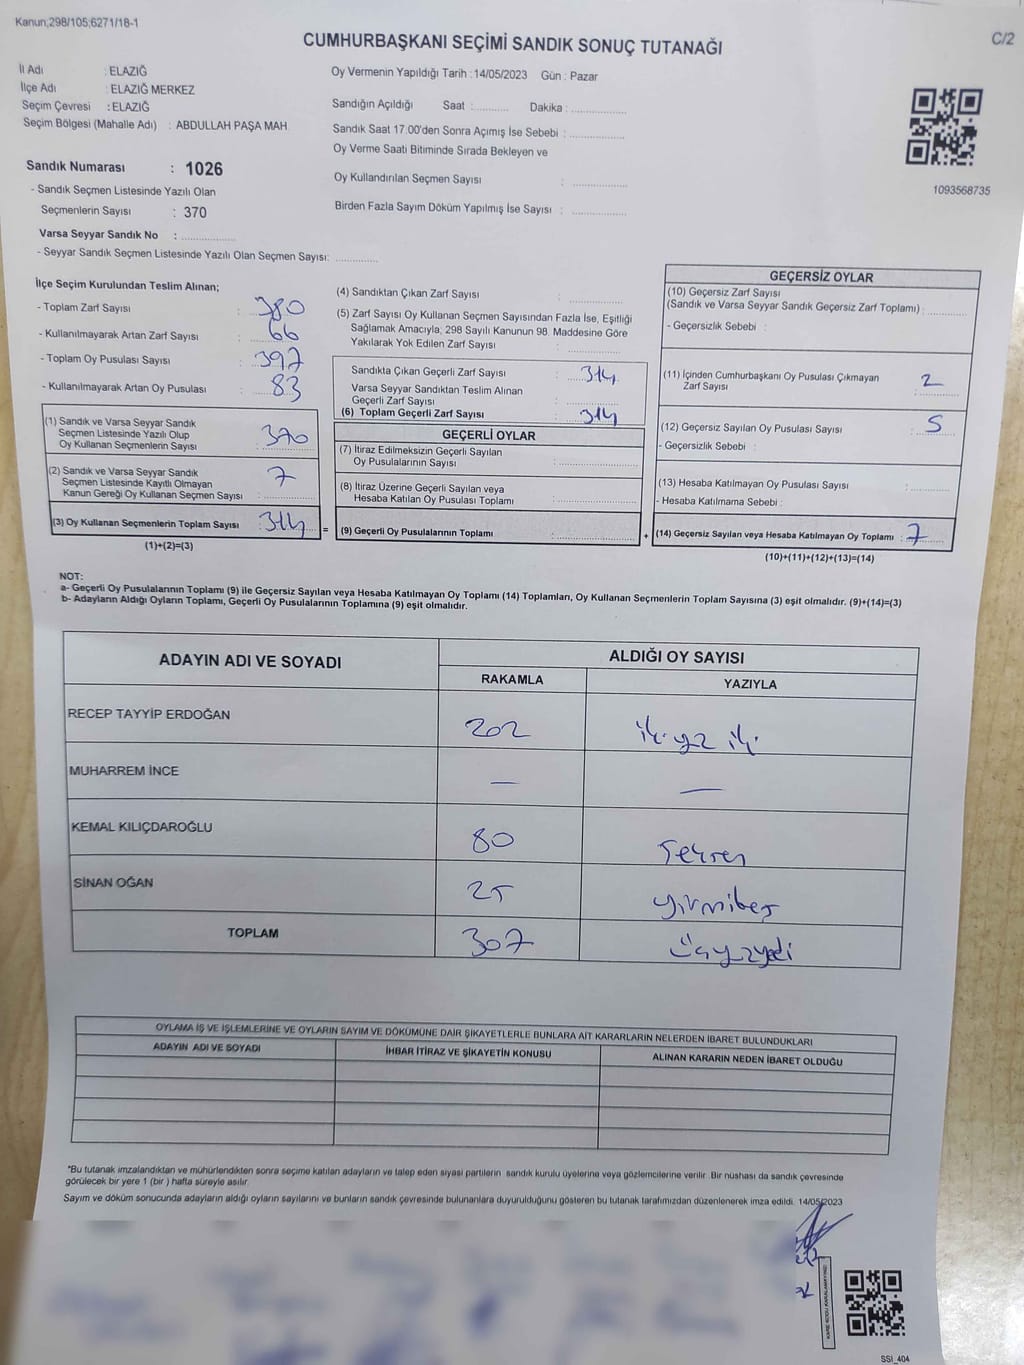 Kanun;298/105;6271/18-1
CUMHURBAŞKANI SEÇİMİ SANDIK SONUÇ TUTANAĞI
C/2
İl Adı : ELAZIĞ
İlçe Adı : ELAZIĞ MERKEZ
Seçim Çevresi : ELAZIĞ
Seçim Bölgesi (Mahalle Adı) : ABDULLAH PAŞA MAH.
Oy Vermenin Yapıldığı Tarih : 14/05/2023 Gün : Pazar
Sandığın Açıldığı Saat :........... Dakika :................
Sandık Saat 17.00'den Sonra Açımış İse Sebebi :................
Oy Verme Saati Bitiminde Sırada Bekleyen ve
Oy Kullandırılan Seçmen Sayısı :................
Birden Fazla Sayım Döküm Yapılmış İse Sayısı :................
1093568735
Sandık Numarası : 1026
- Sandık Seçmen Listesinde Yazılı Olan
Seçmenlerin Sayısı : 370
Varsa Seyyar Sandık No :................
- Seyyar Sandık Seçmen Listesinde Yazılı Olan Seçmen Sayısı: ............
İlçe Seçim Kurulundan Teslim Alınan;
- Toplam Zarf Sayısı : 380
- Kullanılmayarak Artan Zarf Sayısı : 66
- Toplam Oy Pusulası Sayısı : 397
- Kullanılmayarak Artan Oy Pusulası : 83
(1) Sandık ve Varsa Seyyar Sandık
Seçmen Listesinde Yazılı Olup
Oy Kullanan Seçmenlerin Sayısı : 370
(2) Sandık ve Varsa Seyyar Sandık
Seçmen Listesinde Kayıtlı Olmayan
Kanun Gereği Oy Kullanan Seçmen Sayısı : 7
(3) Oy Kullanan Seçmenlerin Toplam Sayısı : 314 =
(1)+(2)=(3)
(4) Sandıktan Çıkan Zarf Sayısı :................
(5) Zarf Sayısı Oy Kullanan Seçmen Sayısından Fazla İse, Eşitliği
Sağlamak Amacıyla; 298 Sayılı Kanunun 98. Maddesine Göre
Yakılarak Yok Edilen Zarf Sayısı :................
Sandıkta Çıkan Geçerli Zarf Sayısı : 314
Varsa Seyyar Sandıktan Teslim Alınan
Geçerli Zarf Sayısı :................
(6) Toplam Geçerli Zarf Sayısı : 314
GEÇERLİ OYLAR
(7) İtiraz Edilmeksizin Geçerli Sayılan
Oy Pusulalarının Sayısı :................
(8) İtiraz Üzerine Geçerli Sayılan veya
Hesaba Katılan Oy Pusulası Toplamı :................
(9) Geçerli Oy Pusulalarının Toplamı :................ +
GEÇERSİZ OYLAR
(10) Geçersiz Zarf Sayısı
(Sandık ve Varsa Seyyar Sandık Geçersiz Zarf Toplamı) :............
- Geçersizlik Sebebi :
(11) İçinden Cumhurbaşkanı Oy Pusulası Çıkmayan
Zarf Sayısı : 2
(12) Geçersiz Sayılan Oy Pusulası Sayısı : 5
- Geçersizlik Sebebi :
(13) Hesaba Katılmayan Oy Pusulası Sayısı :............
- Hesaba Katılmama Sebebi :
(14) Geçersiz Sayılan veya Hesaba Katılmayan Oy Toplamı : 7
(10)+(11)+(12)+(13)=(14)
NOT:
a- Geçerli Oy Pusulalarının Toplamı (9) ile Geçersiz Sayılan veya Hesaba Katılmayan Oy Toplamı (14) Toplamları, Oy Kullanan Seçmenlerin Toplam Sayısına (3) eşit olmalıdır. (9)+(14)=(3)
b- Adayların Aldığı Oyların Toplamı, Geçerli Oy Pusulalarının Toplamına (9) eşit olmalıdır.
ADAYIN ADI VE SOYADI
ALDIĞI OY SAYISI
RAKAMLA
YAZIYLA
RECEP TAYYİP ERDOĞAN 202 iki yüz iki
MUHARREM İNCE — —
KEMAL KILIÇDAROĞLU 80 seksen
SİNAN OĞAN 25 yirmibeş
TOPLAM 307 üçyüzyedi
OYLAMA İŞ VE İŞLEMLERİNE VE OYLARIN SAYIM VE DÖKÜMÜNE DAİR ŞİKAYETLERLE BUNLARA AİT KARARLARIN NELERDEN İBARET BULUNDUKLARI
ADAYIN ADI VE SOYADI
İHBAR İTİRAZ VE ŞİKAYETİN KONUSU
ALINAN KARARIN NEDEN İBARET OLDUĞU
*Bu tutanak imzalandıktan ve mühürlendikten sonra seçime katılan adayların ve talep eden siyasi partilerin sandık kurulu üyelerine veya gözlemcilerine verilir. Bir nüshası da sandık çevresinde
görülecek bir yere 1 (bir ) hafta süreyle asılır.
Sayım ve döküm sonucunda adayların aldığı oyların sayılarını ve bunların sandık çevresinde bulunanlara duyurulduğunu gösteren bu tutanak tarafımızdan düzenlenerek imza edildi. 14/05/2023
KARE KODU KARALAMAYINIZ!
SSI_404